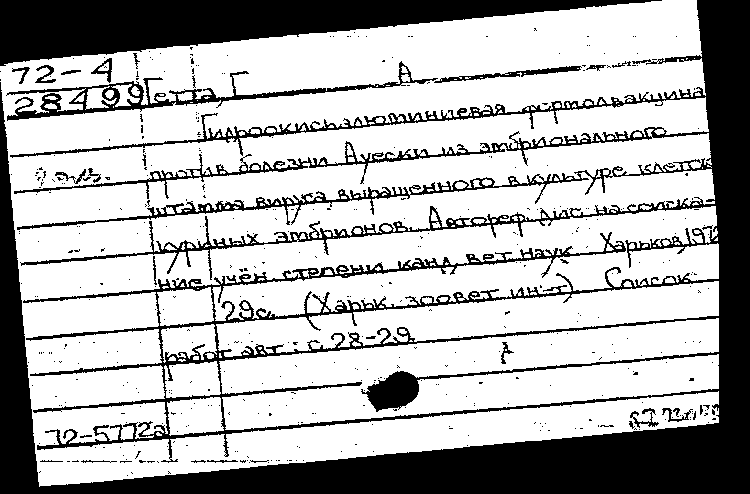 72-4
28499 Гетта, Г А
Гидроокисьалюминиевая формолвакцина
против болезни Ауески из эмбрионального
штамма вируса, выращенного в культуре клеток
куриных эмбрионов. Автореф. дис. на соиска-
ние учён. степени канд. вет. наук. Харьков, 1972
29с. (Харьк. зоовет. ин-т). Список
работ авт.: с. 28-29
72-5772а